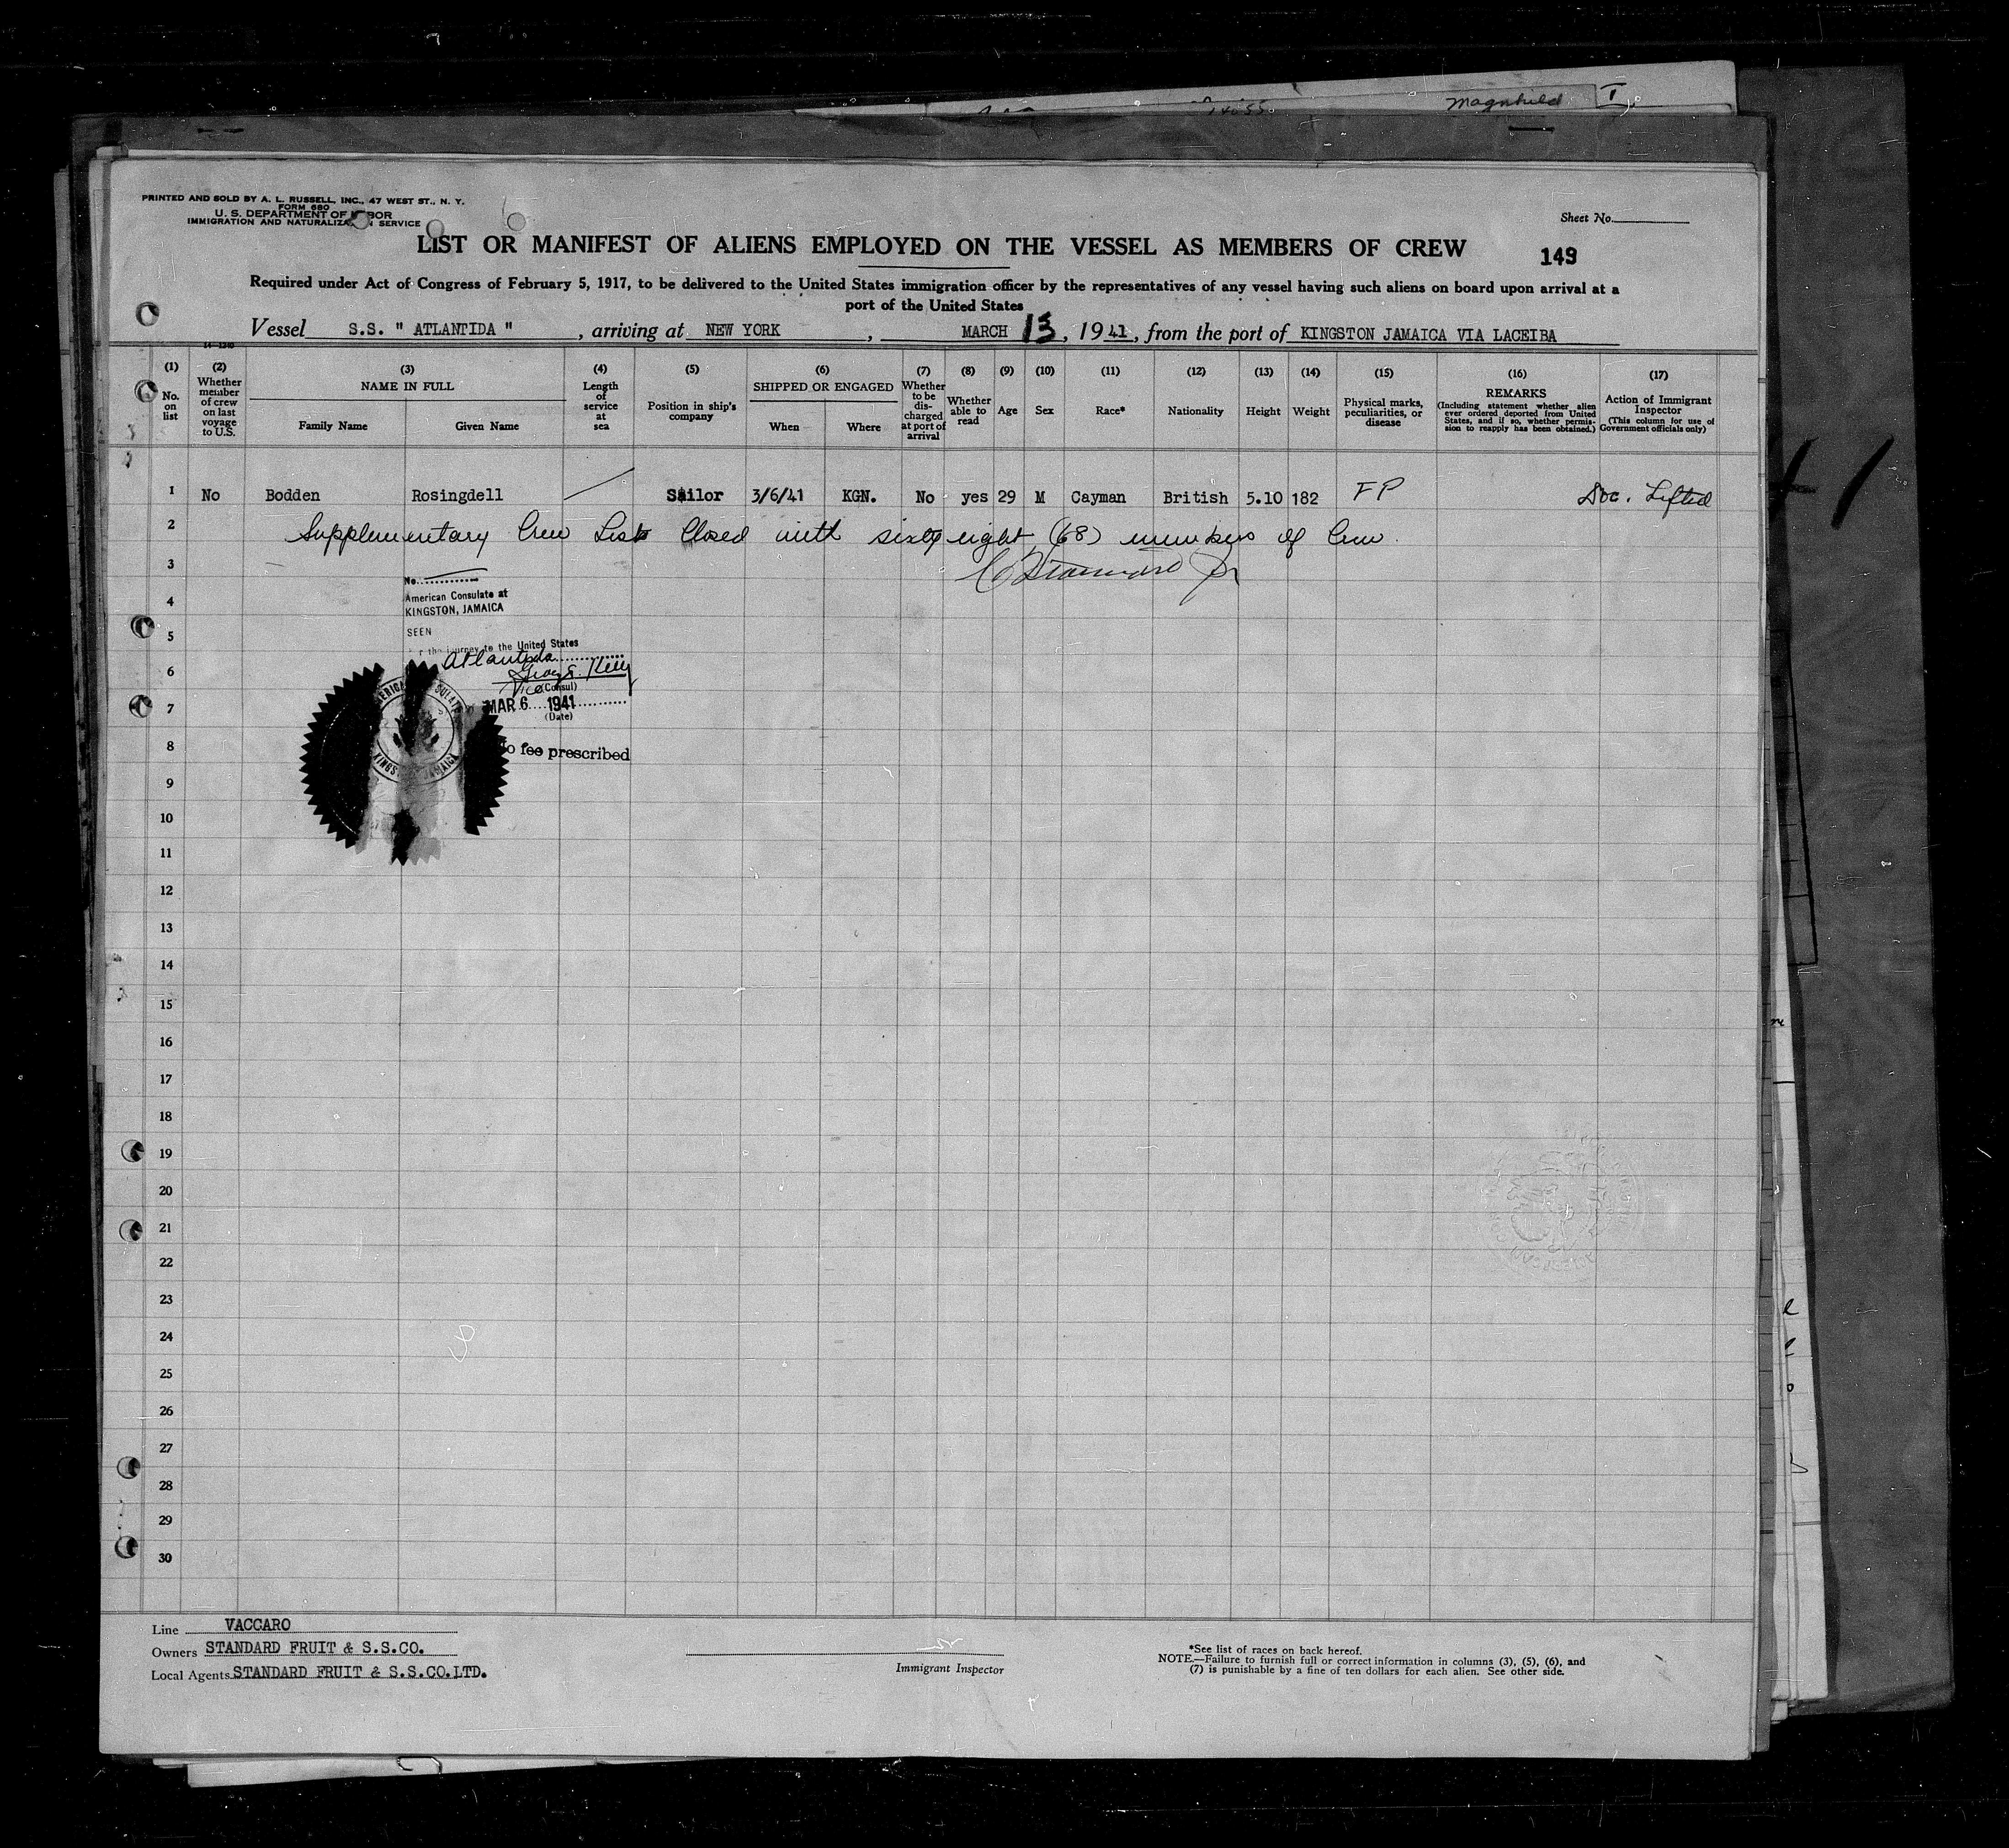 Magnhild I
PRINTED AND SOLD BY A. L. RUSSELL, INC., 47 WEST ST., N. Y.
FORM 680
U. S. DEPARTMENT OF LABOR
IMMIGRATION AND NATURALIZATION SERVICE
Sheet No.
LIST OR MANIFEST OF ALIENS EMPLOYED ON THE VESSEL AS MEMBERS OF CREW
149
Required under Act of Congress of February 5, 1917, to be delivered to the United States immigration officer by the representatives of any vessel having such aliens on board upon arrival at a
port of the United States
Vessel S.S. " ATLANTIDA ", arriving at NEW YORK, MARCH 13, 1941, from the port of KINGSTON JAMAICA VIA LACEIBA
14—1240
(1) No. on list
(2) Whether member of crew on last voyage to U.S.
(3) NAME IN FULL
Family Name
Given Name
(4) Length of service at sea
(5) Position in ship's company
(6) SHIPPED OR ENGAGED
When
Where
(7) Whether to be discharged at port of arrival
(8) Whether able to read
(9) Age
(10) Sex
(11) Race*
(12) Nationality
(13) Height
(14) Weight
(15) Physical marks, peculiarities, or disease
(16) REMARKS
(Including statement whether alien ever ordered deported from United States, and if so, whether permission to reapply has been obtained.)
(17) Action of Immigrant Inspector
(This column for use of Government officials only)
1 No Bodden Rosingdell Sailor 3/6/41 KGN. No yes 29 M Cayman British 5.10 182 FP Doc. Lifted
2 Supplementary Crew List Closed with sixty eight (68) members of Crew.
3
No.
American Consulate at
4
KINGSTON, JAMAICA
SEEN
5
r the journey to the United States
Atlantida
6
Vice (Consul)
7
MAR 6 1941
(Date)
8
No fee prescribed
9
10
11
12
13
14
15
16
17
18
19
20
21
22
23
24
25
26
27
28
29
30
Line VACCARO
Owners STANDARD FRUIT & S.S.CO.
Local Agents STANDARD FRUIT & S.S.CO.LTD.
Immigrant Inspector
*See list of races on back hereof.
NOTE.—Failure to furnish full or correct information in columns (3), (5), (6), and
(7) is punishable by a fine of ten dollars for each alien. See other side.